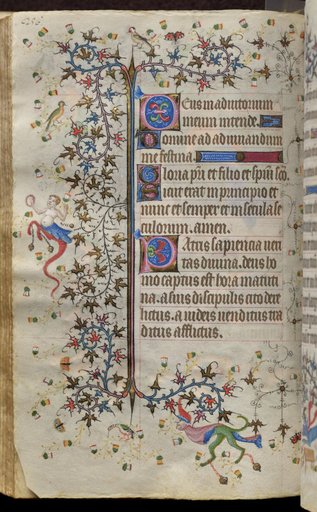 Deus in adiutorium
meum intende.
Domine ad adiuvandum
me festina.
Gloria pr̃i et filio et spũi sc̃o
Sicut erat in principio et
nunc et semper et in secula se
culorum. amen.
Patris sapiencia veri
tas divina. deus ho
mo captus est hora matuti
na. a suis discipulis cito dere
lictus. a iudeis venditus tra
ditus afflictus.